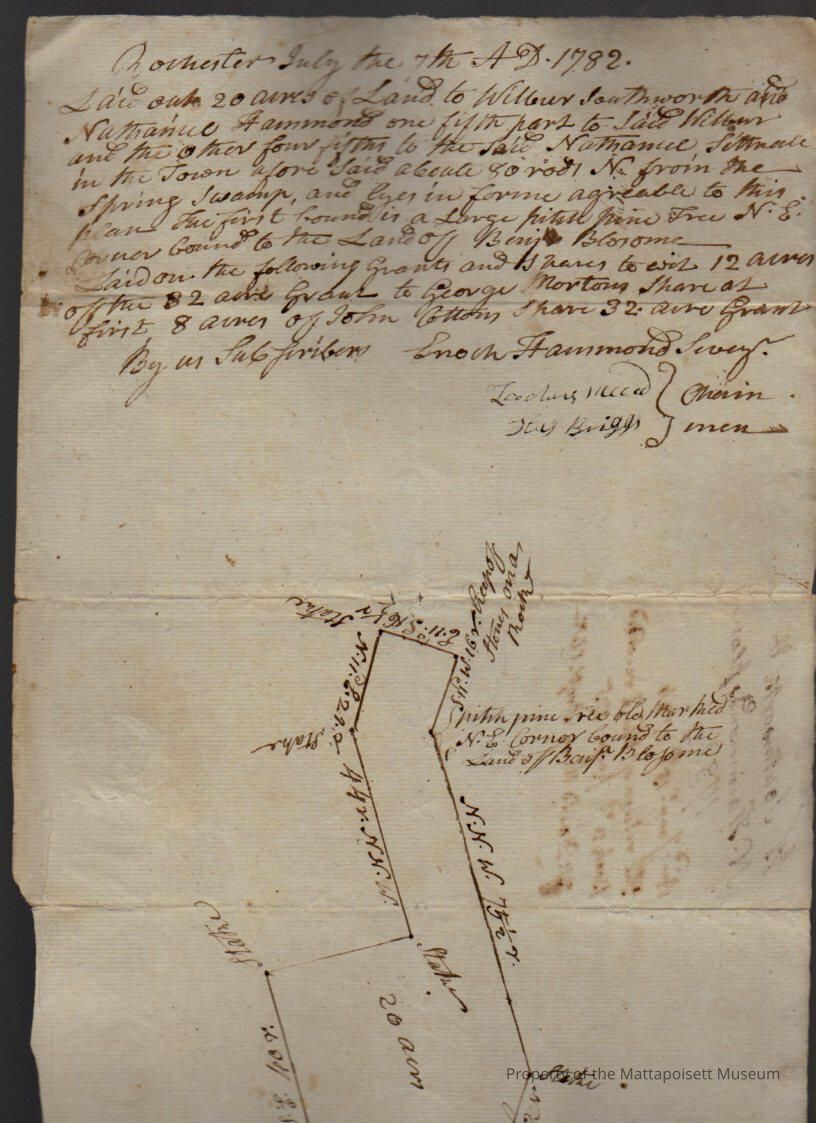 Rochester July the 7th A D. 1782.
Laid out 20 acres of Land to Wilbur Southworth and
Nathaniel Hammond one fifth part to Said Wilbur
and the other four fifths to the Said Nathaniel Sittuate
in the Town afore Said aboute 80 rods N. from the
Spring Swamp, and lyes in forme agreable to this
plan The first bound is a Large pitch pine Tree N. E.
Corner bound to the Land off Benj. Blosome
Laid on the following Grants and Shares to wit 12 acres
off the 32 acre Grant to George Mortons Share at
first 8 acres of John Cottons Share 32 acre Grant
By us Subscribers Enoch Hammond Sevey.
Chain
Briggs men
Stake
Heap off
Stones on a
Rock
S. 11. W. 16 r.
Stake
pitch pine Tree old Marked
N. E. Corner bound to the
Land off Benj. Blosome
44 r. N.N.W.
N. N. W. 74½ r.
Stake
Stake
20 acres
40 r.
Stake
Property of the Mattapoisett Museum